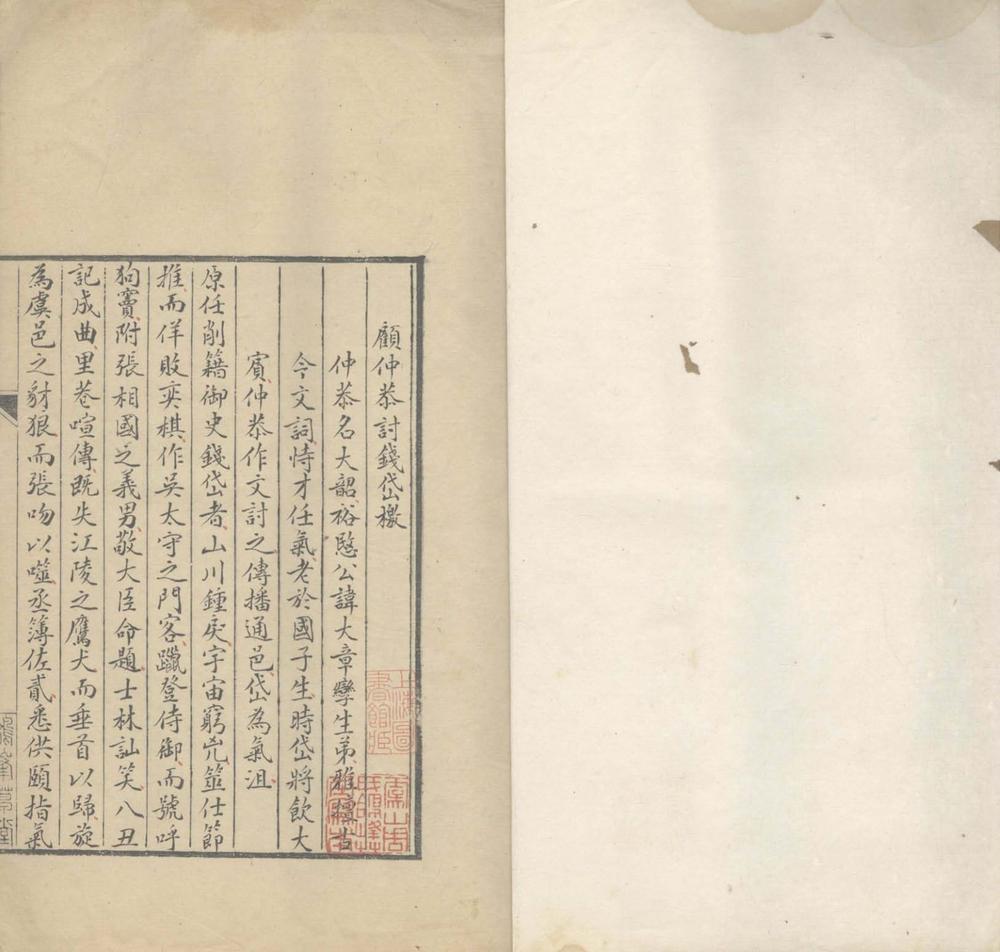 顧仲恭討錢岱檄
仲恭名大韶裕愍公諱大章孿生弟雅擅古
今文詞恃才任氣老於國子生時岱將飲大
賓仲恭作文討之傳播通邑岱為氣沮
原任削籍御史錢岱者山川鍾戾宇宙窮兇筮仕節
推而佯敗奕棋作吳太守之門客躐登侍御而號呼
狗竇附張相國之義男敬大臣命題士林訕笑八丑
記成曲里巷喧傳既失江陵之鷹犬而垂首以歸旋
為虞邑之豺狼而張吻以噬丞簿佐貳悉供頤指氣
上海圖
書館藏